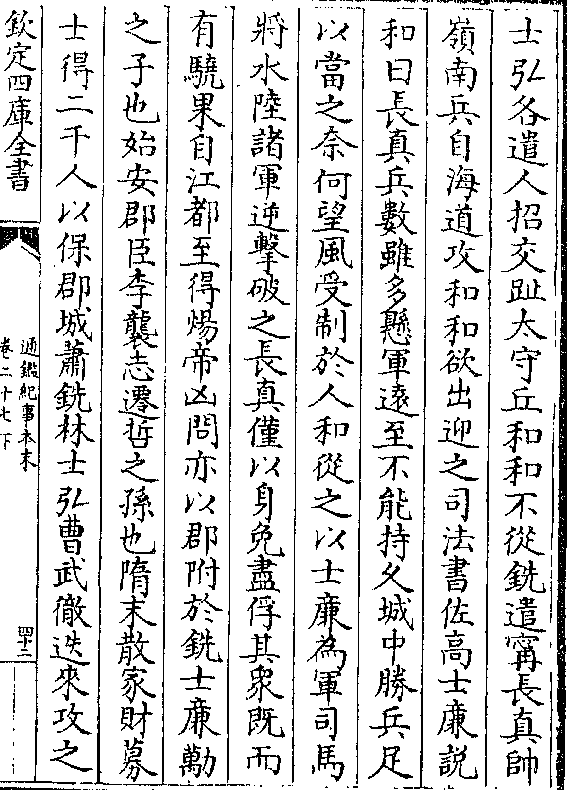 士弘各遣人招交趾太守丘和和不從銑遣甯長真帥
嶺南兵自海道攻和和欲出迎之司法書佐高士廉説
和曰長真兵數雖多懸軍逺至不能持久城中勝兵足
以當之奈何望風受制於人和從之以士廉為軍司馬
將水陸諸軍逆擊破之長真僅以身免盡俘其衆既而
有驍果自江都至得煬帝凶問亦以郡附於銑士廉勱
之子也始安郡臣李襲志遷哲之孫也隋末散家財募
士得二千人以保郡城蕭銑林士弘曹武徹迭來攻之
欽定四庫全書
通鑑紀事本末
卷二十七下
四十三